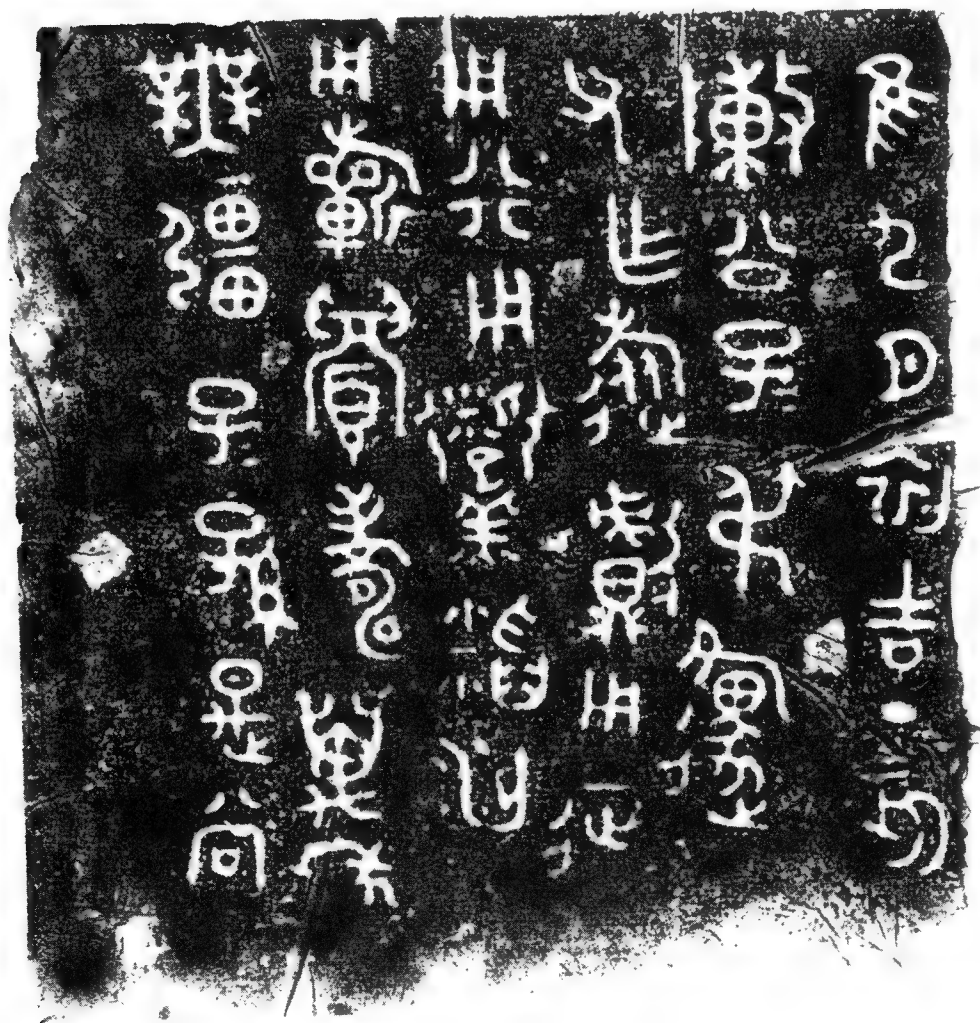 隹九月初吉丁亥
敶公子子弔邍
父乍旅獻用征
用行用稻汈
用眉壽萬年
無彊子孫是尚